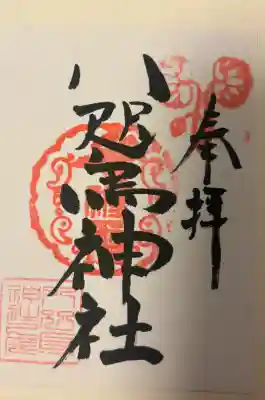 奉拝
八咫烏神社